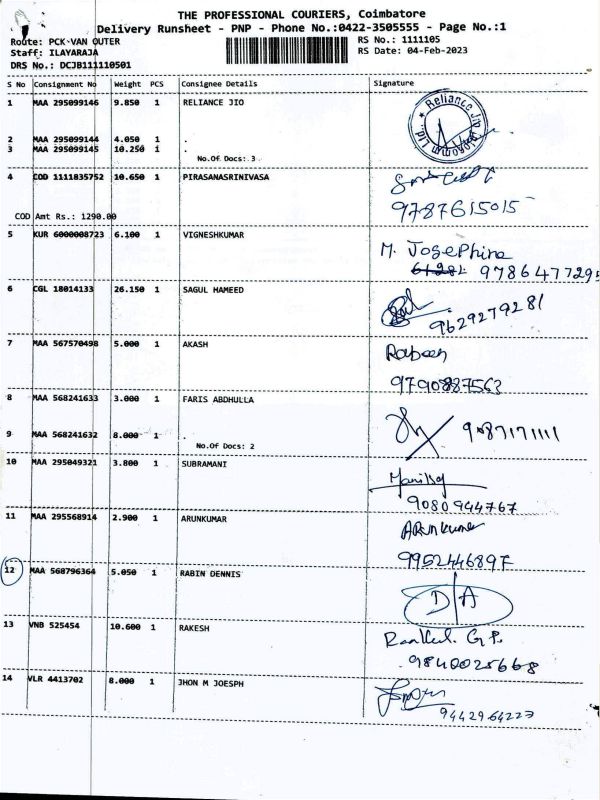 THE PROFESSIONAL COURIERS, Coimbatore
Delivery Runsheet - PNP - Phone No.:0422-3505555 - Page No.:1
Route: PCK-VAN OUTER
RS No.: 1111105
Staff: ILAYARAJA
RS Date: 04-Feb-2023
DRS No.: DCJB111110501
S No Consignment No Weight PCS Consignee Details Signature
1 MAA 295099146 9.850 1 RELIANCE JIO
Reliance Jio
2 MAA 295099144 4.050 1 .
3 MAA 295099145 10.250 1
No.Of Docs: 3
4 COD 1111835752 10.650 1 PIRASANASRINIVASA
9787615015
COD Amt Rs.: 1290.00
5 KUR 6000008723 6.100 1 VIGNESHKUMAR
M. Josephine
9786477295
6 CGL 18014133 26.150 1 SAGUL HAMEED
9629279281
7 MAA 567570498 5.000 1 AKASH
9790887563
8 MAA 568241633 3.000 1 FARIS ABDHULLA
9 MAA 568241632 8.000 1 .
No.Of Docs: 2
10 MAA 295049321 3.800 1 SUBRAMANI
9080944767
11 MAA 295568914 2.900 1 ARUNKUMAR
Arunkumar
12 MAA 568796364 5.050 1 RABIN DENNIS
D/A
13 VNB 525454 10.600 1 RAKESH
9840025668
14 VLR 4413702 8.000 1 JHON M JOESPH
9442964223